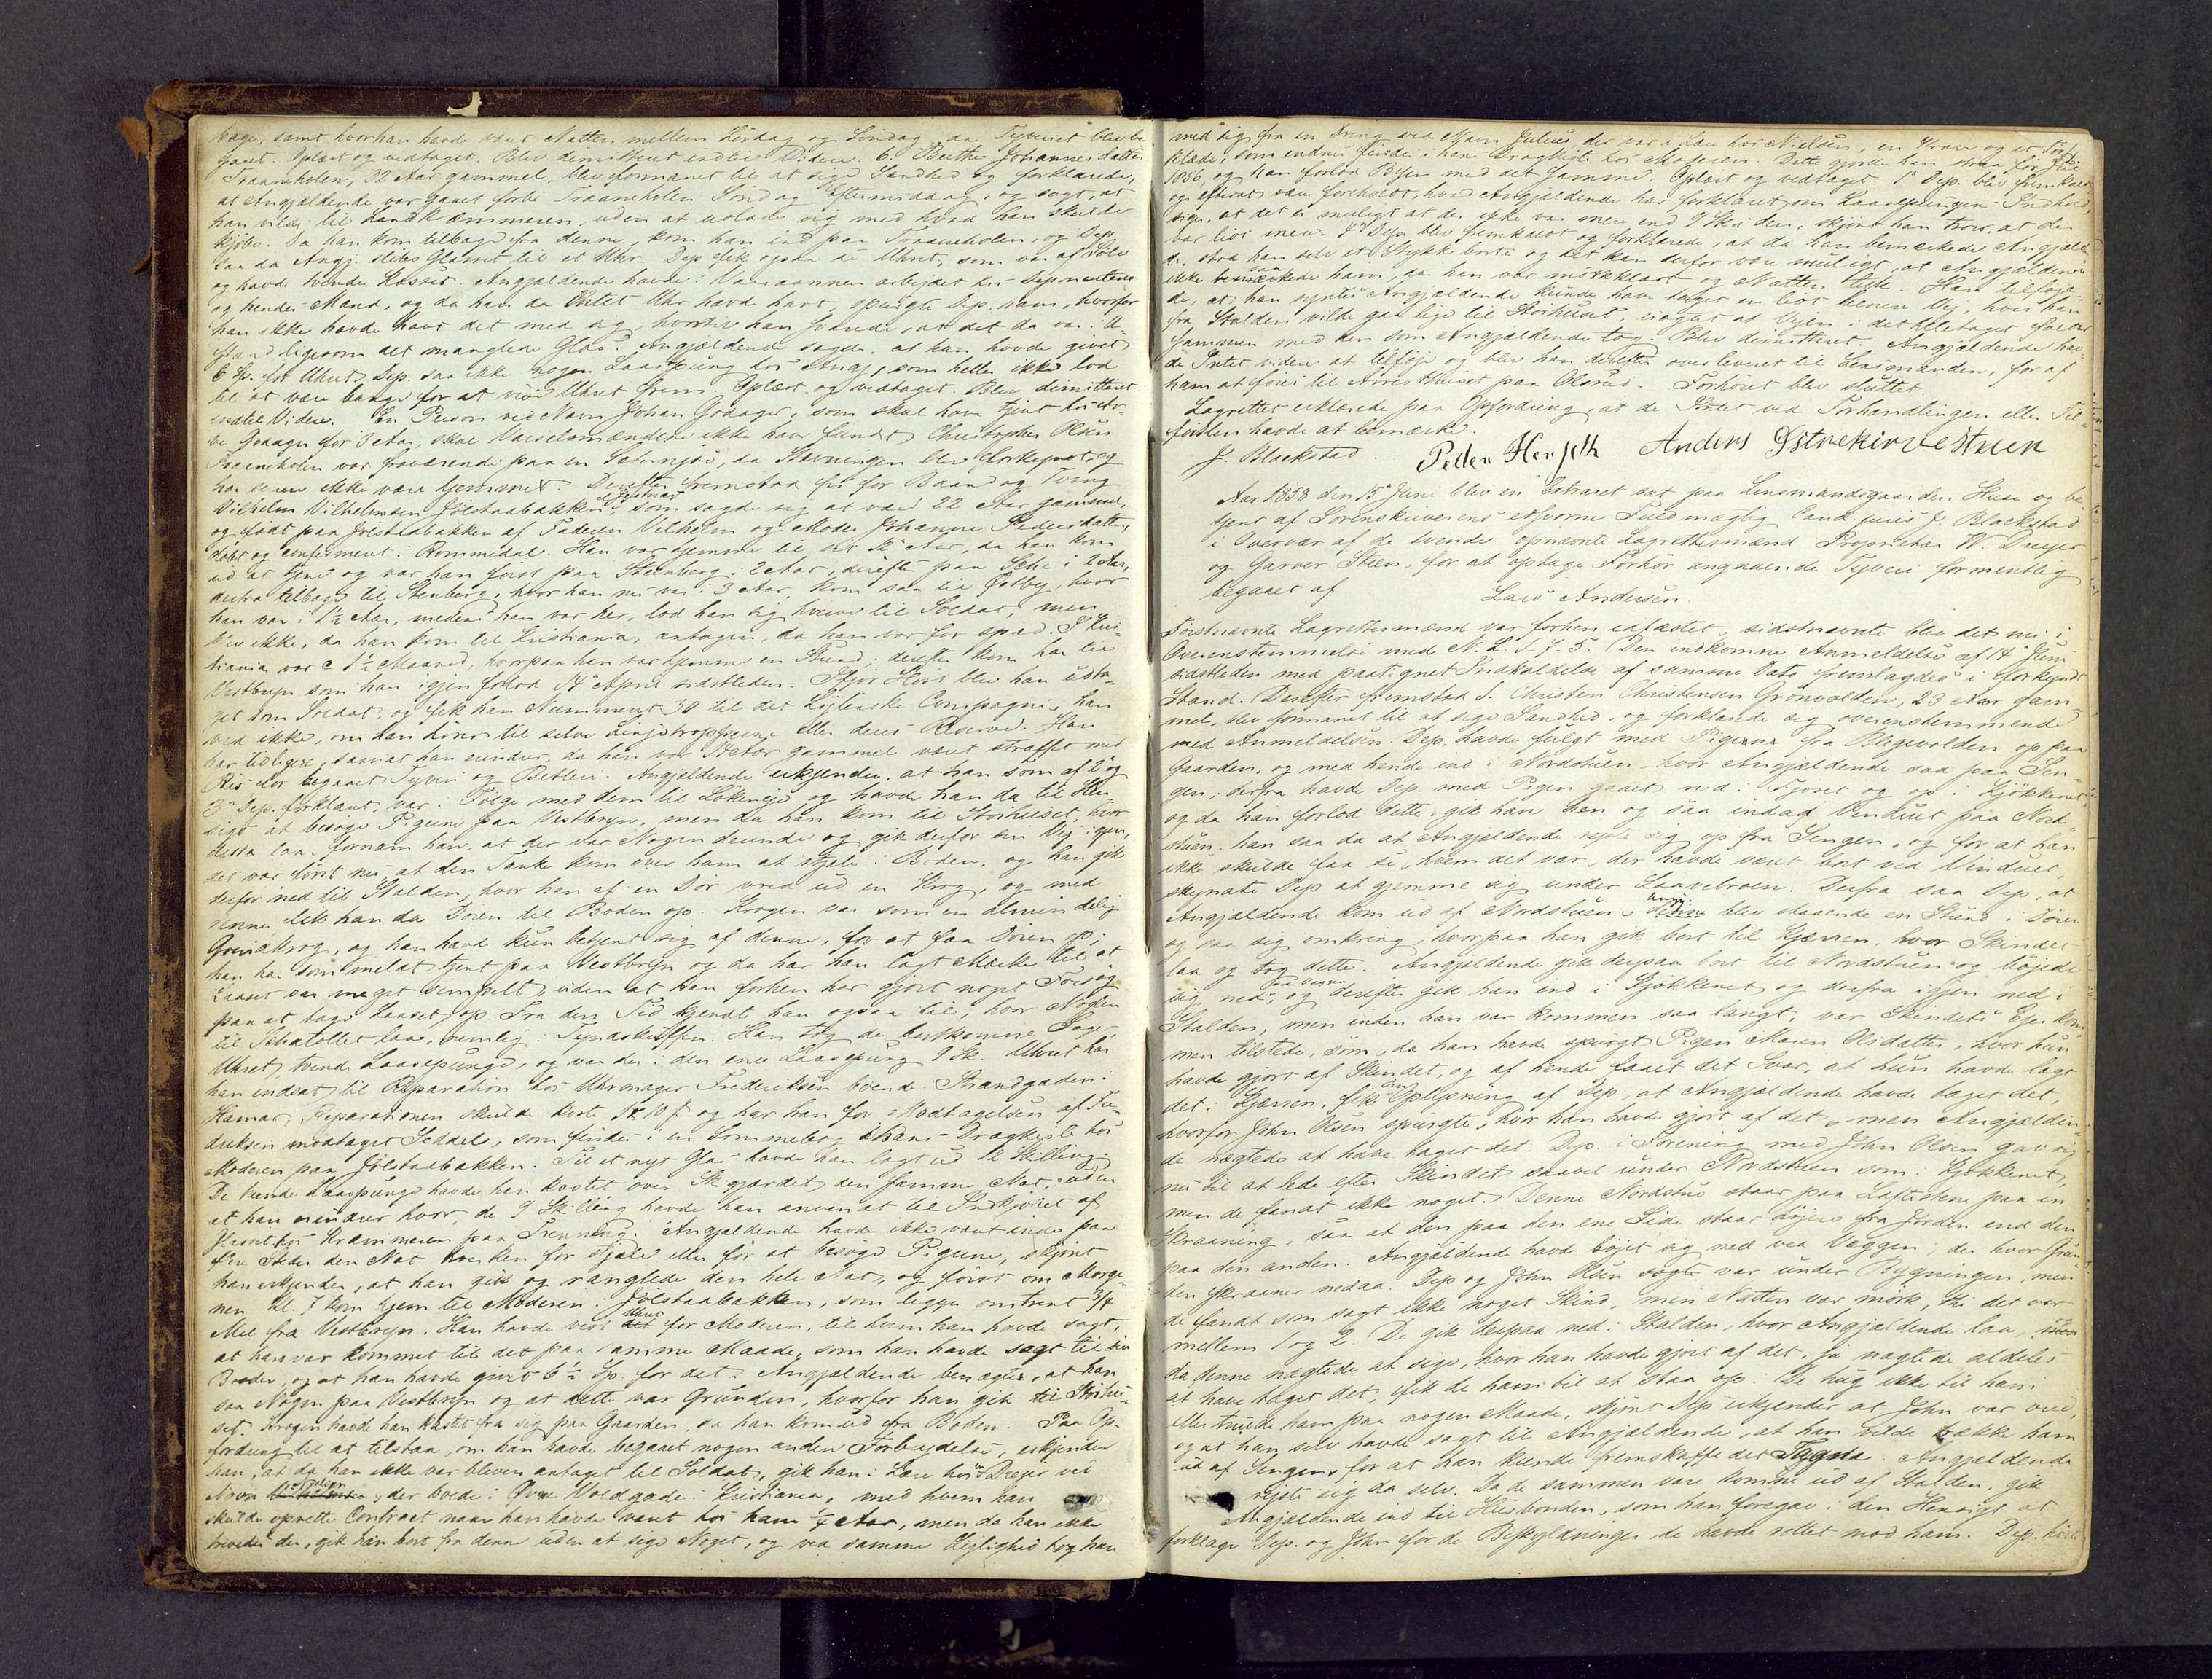 bage, samt hvor han havde været Natten mellem Lördag og Söndag, da Tyveriet blev be-
gaaet. Oplæst og vedtaget. Blev demitteret indtil Videre. 6. Berthe Johannesdatter
Traaneholen, 32 Aar gammel, blev formanet til at sige Sandhed og forklarede,
at Angjældende var gaaet forbi Traaneholen Fredag Eftermiddag, og sagt, at
han vilde til Landkræmmeren, uden at udlade sig med hvad han skulde
kjøbe. Da han kom tilbage fra denne, kom han ind paa Traaneholen, og Dep.
saa da Angj. slibe Glasset til et Uhr. Dep. fik ogsaa se Uhret, som var af Sölv
og havde tvende Kasser. Angjældende havde i Vaaraannen arbeidet hos Deponentinden
og hendes Mand, og da han da Intet Uhr havde havt, spurgte Dep. ham, hvorfor
han ikke havde havt det med sig, hvortil han svarede, at det da var i U-
stand ligesom det manglede Glas. Angjældende sagde, at han havde givet
6 Sp. for Uhret. Dep. saa ikke nogen Laasepung hos Angj., som heller ikke lod
til at være bange for at vise Uhret frem. Oplæst og vedtaget. Blev demitteret
indtil Videre. En Person ved Navn Johan Godager, som skal have tjent hos
Godager for 3 Aar, skal Varselsmændene ikke have fundet. Christopher Olsen
Traaneholen var fraværende paa en Sæterrejse, da Stævningen blev forkyndt og
har senere ikke været hjemme. Derefter fremstod fri for Baand og Tvang
Vilhelm Vilhelmsen Jölstadbakken, som sagde sig at være 22 Aar gammel,
og födt paa Jölstadbakken af Faderen Vilhelm og Moder Johanne Pedersdatter,
döbt og confirmeret i Rommedal. Han var hjemme til sit Aar, da han kom
ud at tjene og var han först paa Steenberg i 2 Aar, derefter paa Sælie i 2 Aar,
derfra tilbage til Stenberg, hvor han nu var i 3 Aar, kom saa til Östby, hvor
han var i 1½ Aar, medens han var her, lod han sig hverve til Soldat, men
blev ikke, da han kom til Kristiania, antagen, da han var for spæd. I Kri-
stiania var c 1½ Maaned, hvorpaa han var hjemme en Stund; derefter kom han til
Vestbryn som han igjen forlod 14de April sidstleden. Ifjor Höst blev han udta-
get som Soldat, og fik han Nummeret 38 til det Löitenske Compagni, han
ved ikke, om han hörer til selve Linjetropperne eller deres Reserve. Han
har tidligere, saavidt han erindrer, da han var Aar gammel været straffet med
Ris for begaaet Tyveri og Betleri. Angjældende erkjender, at han som af 2den og
3de Dep. forklaret, var i Fölge med dem til Lökeneje, og havde han da til Hen-
sigt at besöge Pigerne paa Vestbryn, men da han kom til Störhuset, hvor
disse laa, fornam han, at der var Nogen derinde og gik derfor sin Vej igjen,
det var först nu, at den Tanke kom over ham at stjæle i Boden, og han gik
derfor ned til Stalden, hvor han af en Dör vred ud en Krog, og med
denne fik han da Dören til Boden op. Krogen var som en almindelig
Grindkrog, og han havde kun betjent sig af denne, for at faa Dören op;
han har som meldt tjent paa Vestbryn og da har han lagt Mærke til at
Laaset var meget simpelt, uden at han forhen har gjort noget Forsög
paa at tage Laaset op. Fra den Tid kjendte han ogsaa til, hvor Nöglen
til Schatollet laa, nemlig i. Han tog de bortkomne Sager,
Uhret, tvende Laasepunge, og var der i den ene Laasepung 9 Sk. Uhret har
han indsat til Reparation hos Uhrmager Frederiksen boende i Strandgaden
Hamar; Reparationen skulde koste og har han for Modtagelsen af Fre-
deriksen modtaget Seddel, som findes i en Lommebog i hans Dragkiste hos
Moderen paa Jölstadbakken. Til et nyt Glas havde han lagt ud Skilling.
De tvende Laasepunge havde han kastet over Skigardet den samme Nat, uden
at han erindrer hvor, de 9 Skilling havde han anvendt til Indkjöbet af
Glasset hos Kræmmeren paa Frenning. Angjældende havde ikke været inde paa
flere Steder den Nat hverken for stjæle eller for at besöge Pigerne, skjönt
han erkjender, at han gik og ranglede den hele Nat, og först om Morge-
nen Kl. 7 kom hjem til Moderen i Jölstadbakken, som ligger omtrent 3/4
Mil fra Vestbryn. Han havde vist Uhret for Moderen, til hvem han havde sagt,
at han var kommet til det paa samme Maade, som han havde sagt til sin
Broder, og at han havde givet 6½ Sp. for det. Angjældende benægter, at han
saa Nogen paa Vestbryn og at dette var Grunden, hvorfor han gik til Störhu-
set. Krogen havde han kastet fra sig paa Gaarden, da han kom ud fra Boden. Paa Op-
fordring til at tilstaa, om han havde begaaet nogen anden Forbrydelse, erkjender
han, at da han ikke var bleven antaget til Soldat, gik han i Lære hos en Drejer ved
Navn Nielsen, der boede i Övre Voldgade i Kristiania, med hvem han
skulde oprette Contract naar han havde været hos ham ¼ Aar, men da han ikke
trivedes der, gik han bort fra denne uden at sige Noget, og ved samme Leilighed tog han
med sig fra en Dreng ved Navn Julius, der var i Lære hos Nielsen, en Krave og et Tör-
klæde, som endnu findes i hans Dragkiste hos Moderen. Dette gjorde han strax för Jul
1856, og han forlod Byen med det Samme. Oplæst og vedtaget. 1ste Dep. blev fremkaldt
og efterat være foreholdt, hvad Angjældende har forklaret om Laasepungens Indhold,
siger, at det er muligt at der ikke var mere end 9 Sk. i den, skjönt han troer, at der
var lidt mere. 4de Dep. blev fremkaldt og forklarede, at da han bemærkede Angjælden-
de, stod han selv et Stykke borte og det kan derfor være muligt, at Angjældende
ikke bemærkede ham, da han var mörkklædt og Natten tyk. Han tilföje-
de, at han syntes Angjældende kunde have taget en lidt kortere Vej, hvis han
fra Stalden vilde gaa lige til Störhuset, uagtet at Vejen i det hele taget falder
sammen med den som Angjældende tog. Blev dimitteret. Angjældende hav-
de Intet videre at tilföje og blev han derefter overleveret til Lensmanden, for af
ham at föres til Arresthuset paa Olsrud. Forhöret blev sluttet.
Lagrettet erklærede paa Opfordring, at de Intet ved Forhandlingen eller Til-
förslen havde at bemærke.
J. Blackstad. Peder Herseth Anders Östrekirvestuen
Aar 1858 den 15de Juni blev en Extraret sat paa Lensmandsgaarden Huse og be-
tjent af Sorenskriverens edsvorne Fuldmægtig Cand. juris J. Blackstad
i Overvær af de tvende opnævnte Lagrettesmænd Proprietær W. Dreyer
og Garver Steen, for at optage Forhör angaaende Tyveri formentlig
begaaet af
Lars Andersen.
Förstnævnte Lagrettesmand var forhen edfæstet, sidstnævnte blev det nu i
Overensstemmelse med N. L. 1-7-5. Den indkomne Anmeldelse af 14de Juni
sidstleden med paategnet Indkaldelse af samme Dato fremlagdes i forkyndt
Stand. Derefter fremstod 1. Christen Christensen Grönvolden, 23 Aar gam-
mel, blev formanet til at sige Sandhed, og forklarede sig overensstemmende
med Anmeldelsen. Dep. havde fulgt med Pigerne fra Blegevolden op paa
Gaarden, og med hende ind i Nordstuen, hvor Angjældende sad paa Sen-
gen; derfra havde Dep. med Pigen gaaet ned i Fjöset og op i Kjökkenet,
og da han forlod dette, gik han hen og saa indad Vinduet paa Nord-
stuen. han saa da at Angjældende rejste sig op fra Sengen, og for at han
ikke skulde faa se, hvem det var, der havde været bort ved Vinduet,
skyndte Dep. at gjemme sig under Laavebroen. Derfra saa Dep., at
Angjældende kom ud af Nordstuen, Angj. blev staaende en Stund i Dören
og saa sig omkring, hvorpaa han gik bort til Kjærren, hvor Skindet
laa og tog dette. Angjældende gik derpaa bort til Nordstuen og böjede
sig ned, og derefter gik han ind i Kjökkenet og derfra igjen ned i
Stalden, men inden han var kommen saa langt, var Skindets Ejer kom-
men tilstede, som, da han havde spurgt Pigen Maren Olsdatter, hvor hun
havde gjort af Skindet, og af hende faaet det Svar, at hun havde lagt
det i Kjærren, fik den Oplysning af Dep., at Angjældende havde taget det,
hvorfor John Olsen spurgte, hvor han havde gjort af det, men Angjælden-
de nægtede at have taget det. Dep. i Forening med John Olsen gav sig
nu til at lede efter Skindet saavel under Nordstuen som i Kjökkenet,
men de fandt ikke noget. Denne Nordstue staar paa Löftestene paa en
Skraaning, saa at den paa den ene Side staar höjere fra Jorden end den
paa den anden. Angjældende havde böjet sig ned ved Væggen, der hvor Grun-
den skraaner nedad. Dep. og John Olsen var under Bygningen, men
de fandt som sagt ikke noget Skind, men Natten var mörk, thi det var
mellem 1 og 2. De gik derpaa ned i Stalden, hvor Angjældende laa,
da denne nægtede at sige, hvor han havde gjort af det, ja nægtede aldeles
at have taget det, fik de ham til at staa op. De hug ikke til ham
eller truede ham paa nogen Maade, skjönt Dep. erkjender at John var vred,
og at han selv havde sagt til Angjældende, at han vilde trække ham
ud af Sengen, for at han kunde fremskaffe det Tagne. Angjældende
rejste sig da selv. Da de sammen vare komne ud af Stalden, gik
Angjældende ind til Husbonden, som han foregav i den Hensigt at
forklage Dep. og John for de Beskyldninger de havde rettet mod ham. Dep. havde